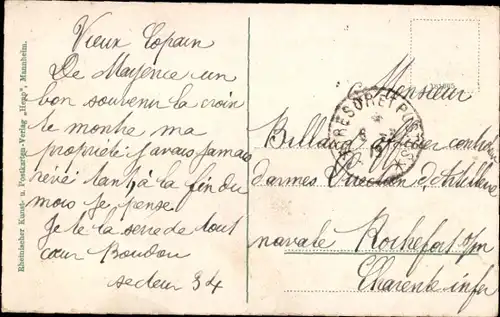 Vieux Copain
De Mayence un
bon souvenir la croix
te montre ma
propriété j'avais jamais
rêvé tant à la fin du
mois je pense
Je te la serre de tout
cœur Boudou
secteur 34
Monsieur
Billaud
d'armes Direction d'artillerie
navale Rochefort s/m
Charente infer
TRESOR ET POSTES
Rheinischer Kunst- u. Postkarten-Verlag „Hepp", Mannheim.